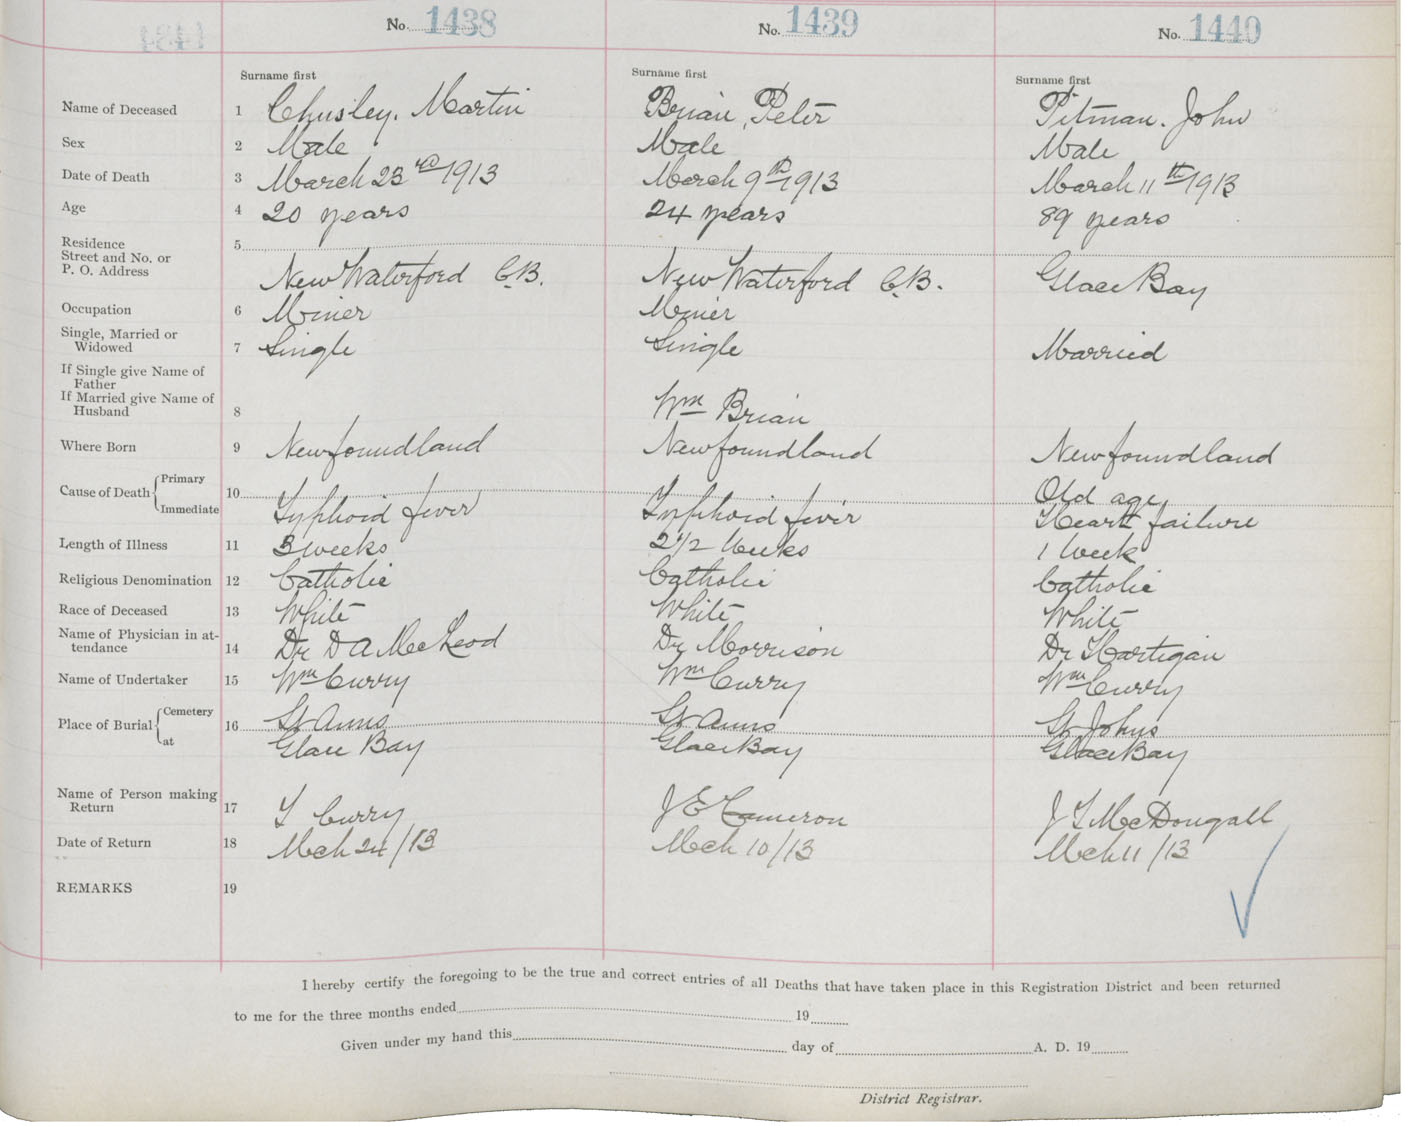 No. 1438 No. 1439 No. 1440
Surname first Surname first Surname first
Name of Deceased 1 Chusley, Martin Brian, Peter Pitman. John
Sex 2 Male Male Male
Date of Death 3 March 23rd 1913 March 9th 1913 March 11th 1913
Age 4 20 years 24 years 89 years
Residence 5
Street and No. or
P. O. Address New Waterford C.B. New Waterford C.B. Glace Bay
Occupation 6 Miner Miner
Single, Married or
Widowed 7 Single Single Married
If Single give Name of
Father
If Married give Name of
Husband 8 Wm Brian
Where Born 9 Newfoundland Newfoundland Newfoundland
Cause of Death Primary 10 Old age
Immediate Typhoid fever Typhoid fever Heart failure
Length of Illness 11 3 weeks 2 1/2 weeks 1 week
Religious Denomination 12 Catholic Catholic Catholic
Race of Deceased 13 White White White
Name of Physician in at-
tendance 14 Dr D A McLeod Dr Morrison Dr Hartigan
Name of Undertaker 15 Wm Curry Wm Curry Wm Curry
Place of Burial Cemetery 16 St Anns St Anns St Johns
at Glace Bay Glace Bay Glace Bay
Name of Person making
Return 17 T Curry J E Cameron J T McDougall
Date of Return 18 Mch 24/13 Mch 10/13 Mch 11/13
REMARKS 19
I hereby certify the foregoing to be the true and correct entries of all Deaths that have taken place in this Registration District and been returned
to me for the three months ended 19
Given under my hand this day of A. D. 19
District Registrar.